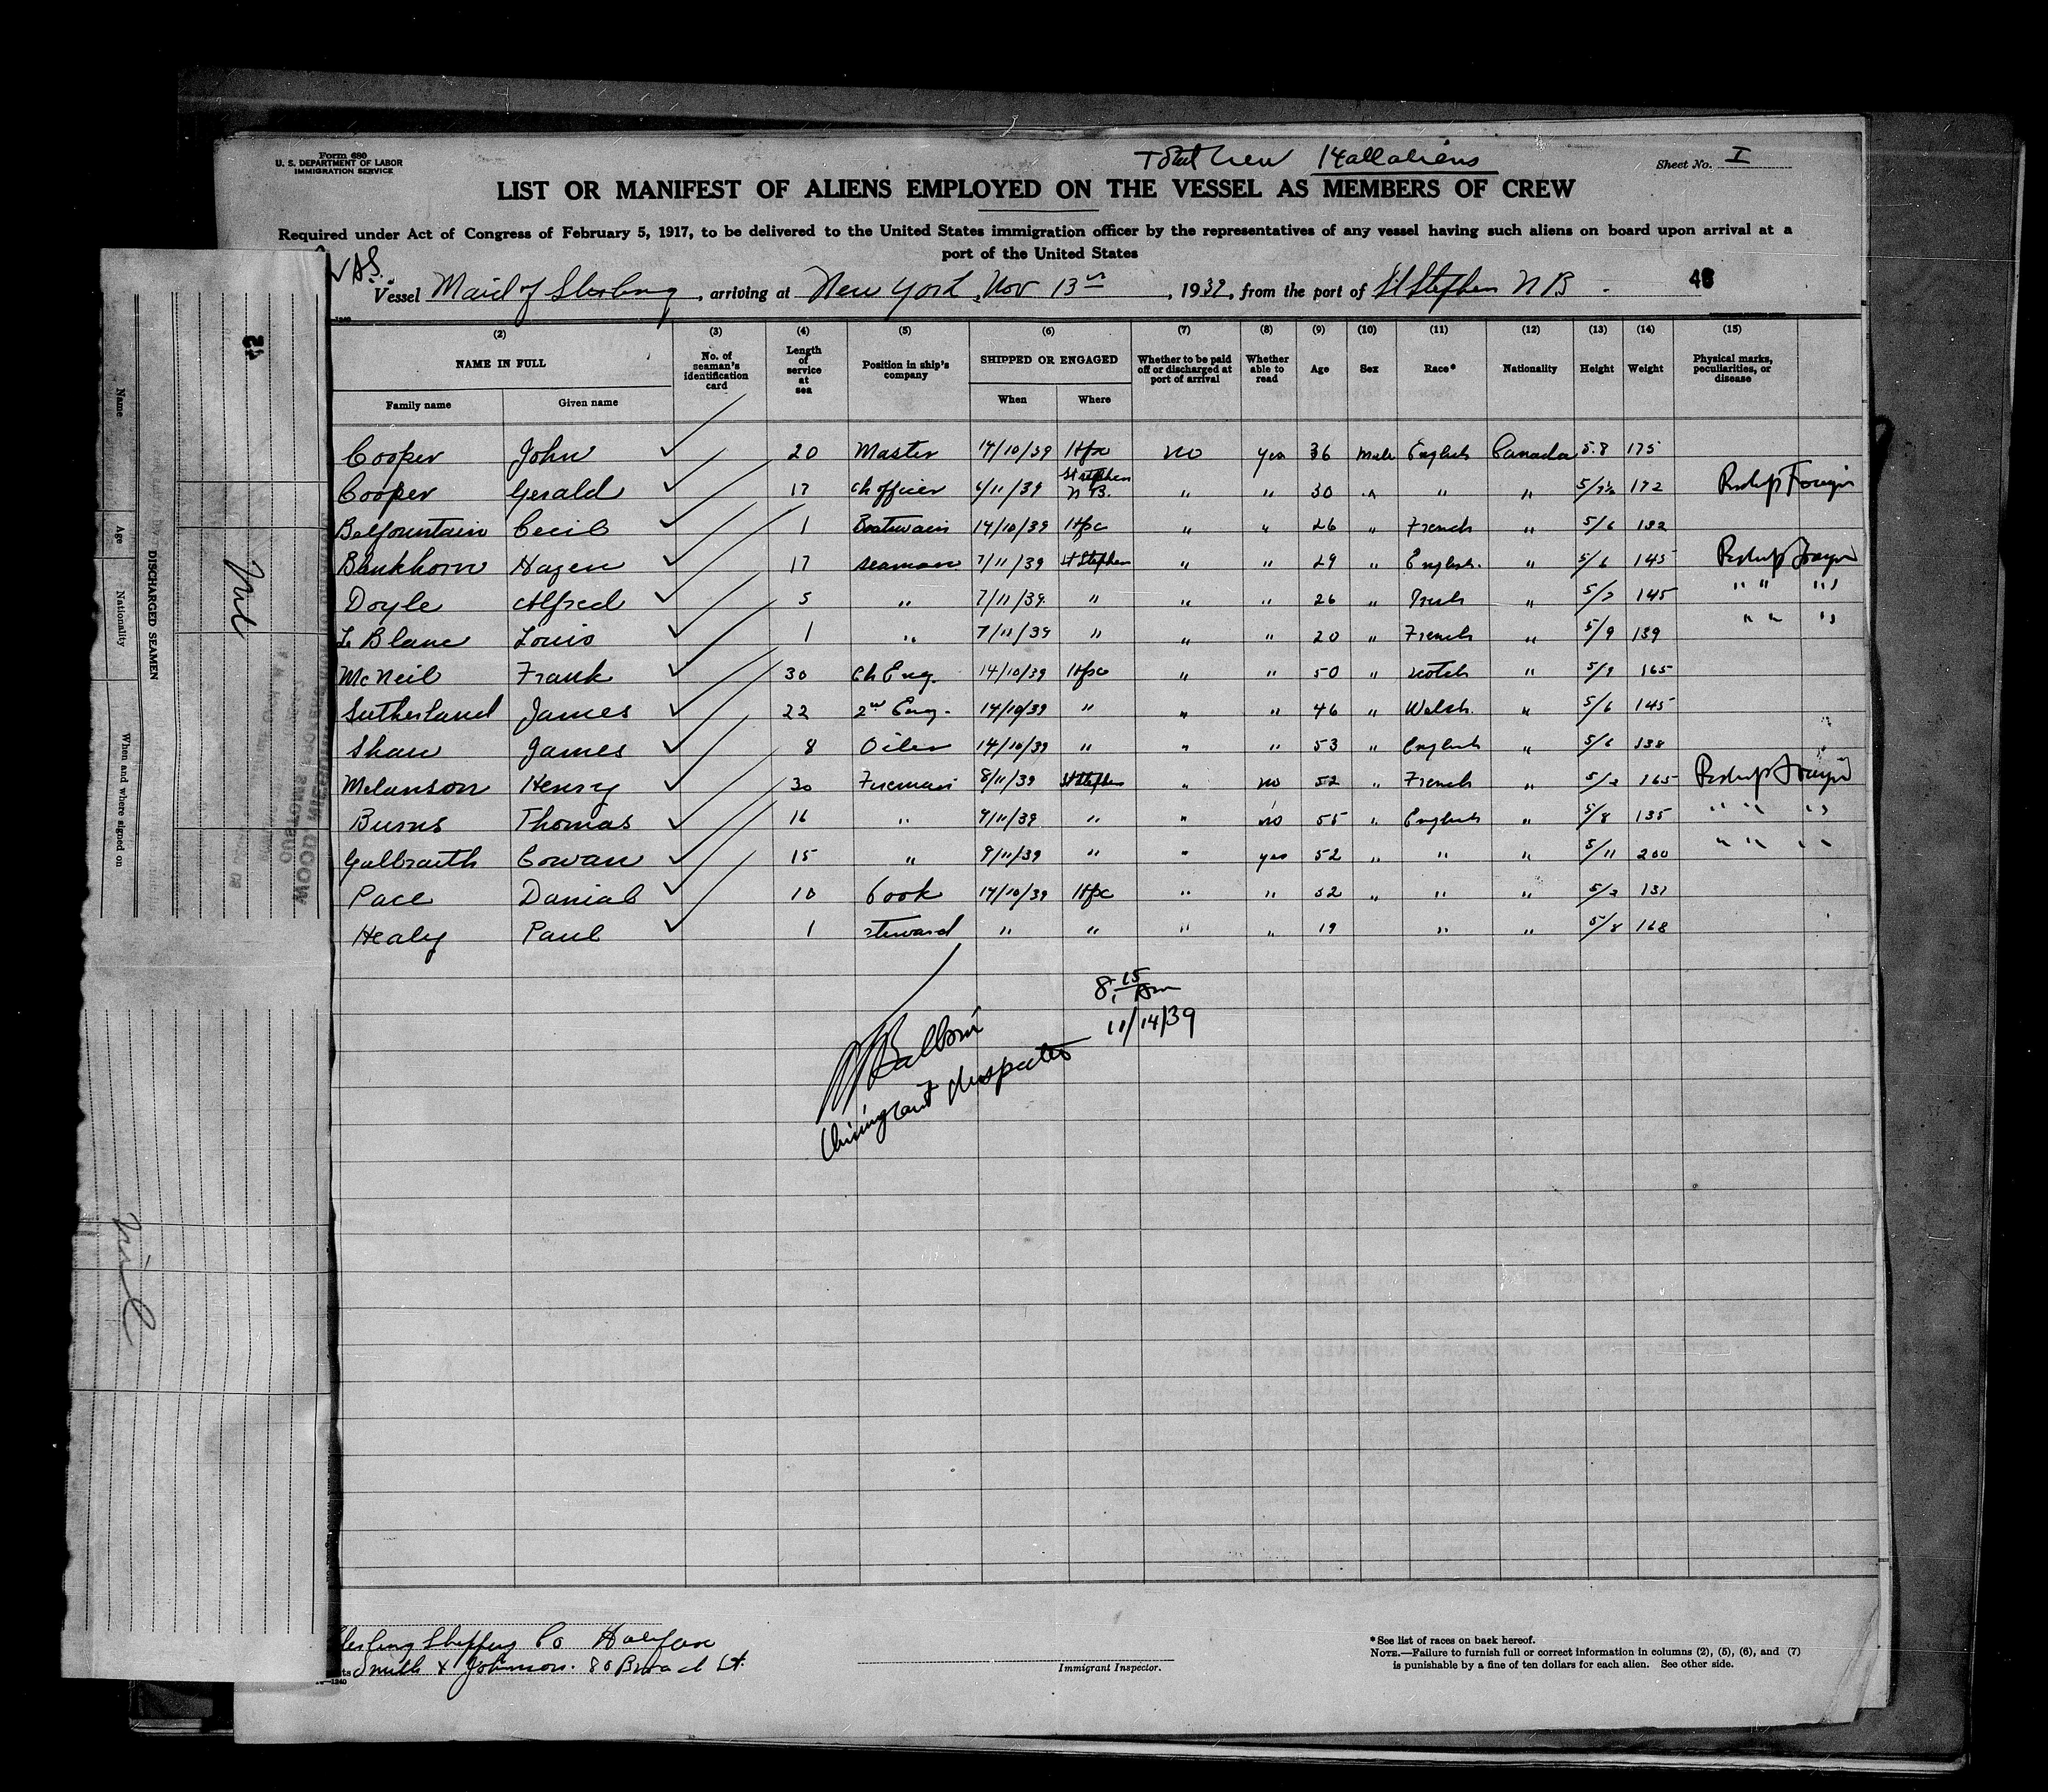 Form 680
U. S. DEPARTMENT OF LABOR
IMMIGRATION SERVICE
Total Crew 14 all aliens
Sheet No. I
LIST OR MANIFEST OF ALIENS EMPLOYED ON THE VESSEL AS MEMBERS OF CREW
Required under Act of Congress of February 5, 1917, to be delivered to the United States immigration officer by the representatives of any vessel having such aliens on board upon arrival at a
port of the United States
Vessel Maid of Sterling, arriving at New York, Nov 13, 1939, from the port of St Stephen N B 48
(2) (3) (4) (5) (6) (7) (8) (9) (10) (11) (12) (13) (14) (15)
NAME IN FULL No. of seaman's identification card Length of service at sea Position in ship's company SHIPPED OR ENGAGED Whether to be paid off or discharged at port of arrival Whether able to read Age Sex Race* Nationality Height Weight Physical marks, peculiarities, or disease
Family name Given name When Where
Cooper John ✓ 20 Master 14/10/39 Hfx no yes 36 Male English Canada 5.8 175
Cooper Gerald ✓ 17 Ch officer 6/11/39 St Stephen N B. " " 30 " " " 172
Belfountain Cecil ✓ 1 Boatswain 14/10/39 Hfx " " 26 " French " 5/6 132
Bankhorn Hazen ✓ 17 Seaman 7/11/39 St Stephen " " 29 " English. " 5/6 145
Doyle Alfred ✓ 5 " 7/11/39 " " " 26 " Irish " 5/7 145 " " " "
Le Blanc Louis ✓ 1 " 7/11/39 " " " 20 " French " 5/9 139 " " " "
McNeil Frank ✓ 30 Ch Eng. 14/10/39 Hfx " " 50 " Scotch " 5/9 165
Sutherland James ✓ 22 2nd Eng. 14/10/39 " " " 46 " Welsh. " 5/6 145
Shaw James ✓ 8 Oiler 14/10/39 " " " 53 " English " 5/6 138
Melanson Henry ✓ 30 Fireman 8/11/39 St Stephen " no 52 " French " 165
Burns Thomas ✓ 16 " 9/11/39 " " no 55 " English " 5/8 135 " " " "
Galbraith Cowan ✓ 15 " 9/11/39 " " yes 52 " " " 5/11 200 " " " "
Pace Danial ✓ 10 Cook 14/10/39 Hfx " " " " " 131
Healy Paul ✓ 1 Steward " " " " 19 " " 5/8 168
8.15 Am
11/14/39
Immigrant Inspector
Sterling Shipping Co Halifax
Smith & Johnson. 80 Broad St.
Immigrant Inspector.
*See list of races on back hereof.
NOTE.—Failure to furnish full or correct information in columns (2), (5), (6), and (7)
is punishable by a fine of ten dollars for each alien. See other side.
DISCHARGED SEAMEN
Name Age Nationality When and where signed on
42
Nil
Nil